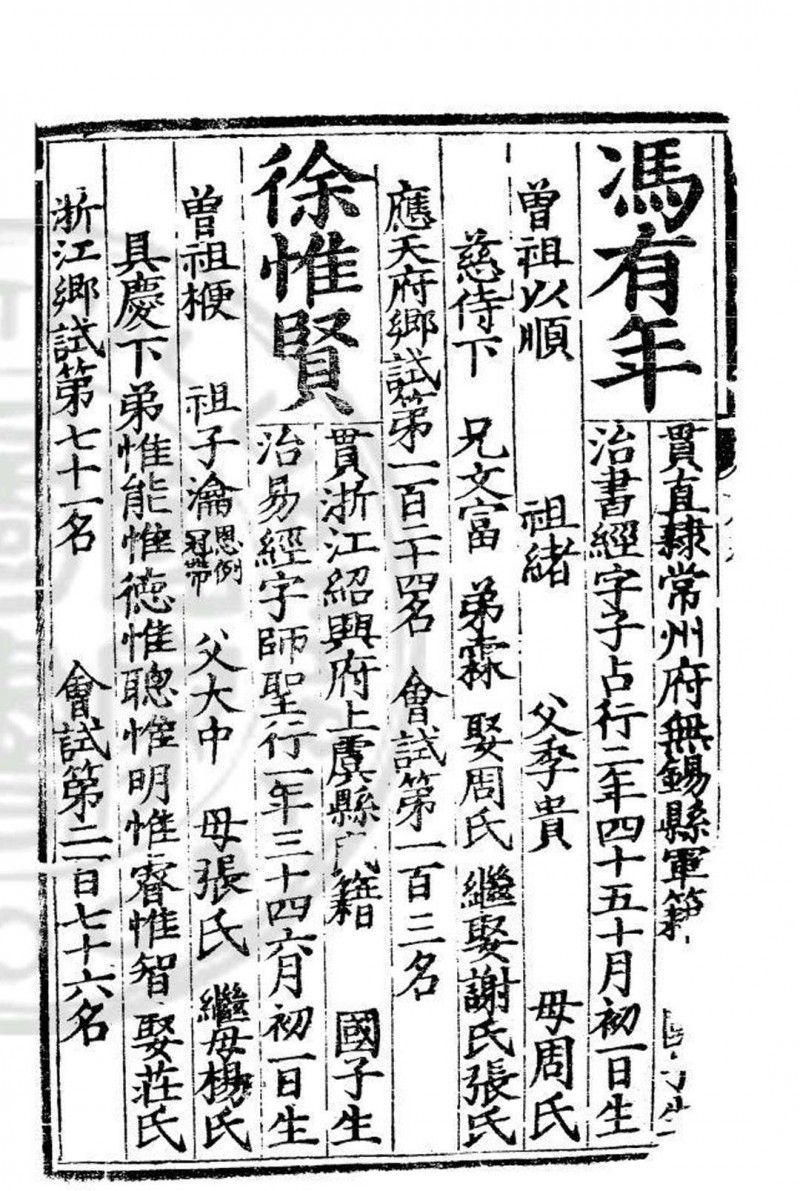 馮有年
貫直隸常州府無錫縣軍籍 子生
治書經字子占行二年四十五十月初一日生
曾祖以順 祖緒 父季貴 母周氏
慈侍下 兄文富 弟霖 娶周氏 繼娶謝氏張氏
應天府鄉試第一百二十四名 會試第一百三名
徐惟賢
貫浙江紹興府上虞縣 籍 國子生
治易經字師聖行一年三十四六月初一日生
曾祖梗 祖子瀹恩例冠帶 父大中 母張氏 繼母楊氏
具慶下弟惟能惟德惟聰惟明惟睿惟智娶莊氏
浙江鄉試第七十一名 會試第二百七十六名